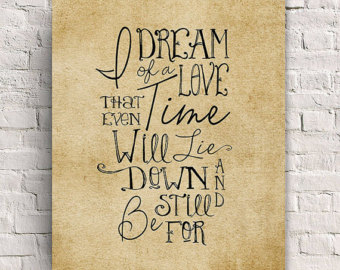 I DREAM
of a LOVE
THAT EVEN Time
Will Lie
DOWN AND
Be STILL
FOR